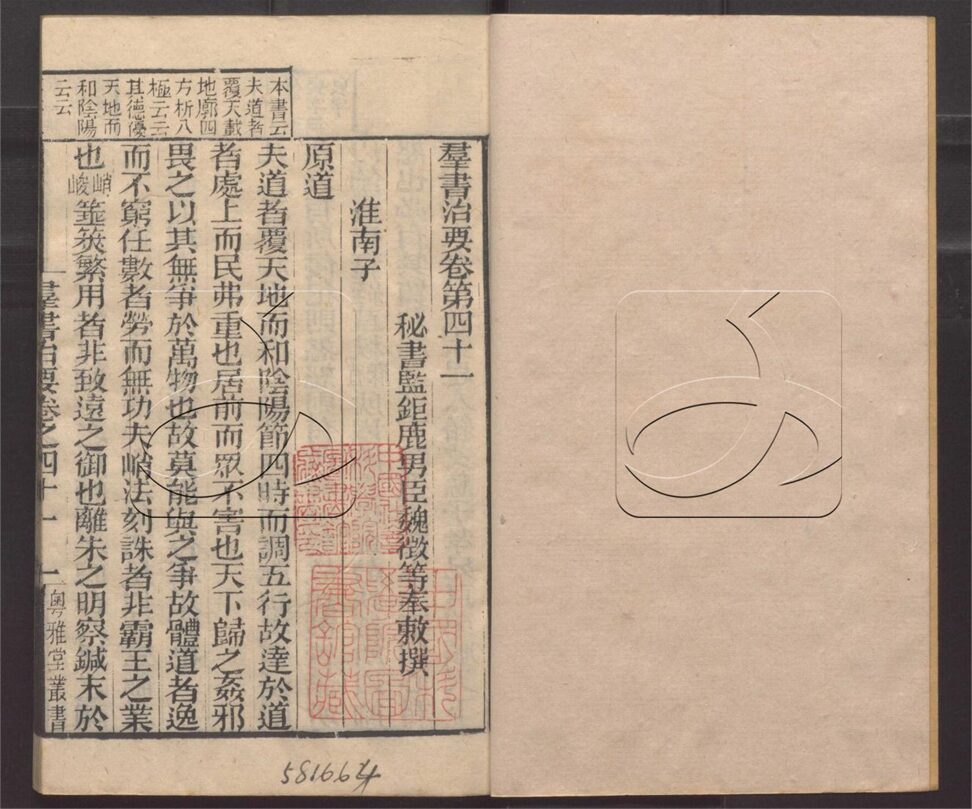 羣書治要卷第四十一
秘書監鉅鹿男臣魏徵等奉敕撰
淮南子
原道
夫道者覆天地而和陰陽節四時而調五行故達於道
者處上而民弗重也居前而眾不害也天下歸之姦邪
畏之以其無爭於萬物也故莫能與之爭故體道者逸
而不窮任數者勞而無功夫峭法刻誅者非霸王之業
也峭峻箠策繁用者非致遠之御也離朱之明察鍼末於
本書云
夫道者
覆天載
地廓四
方析八
極云云
其德優
天地而
和陰陽
云云
羣書治要卷之四十一
一
粵雅堂叢書